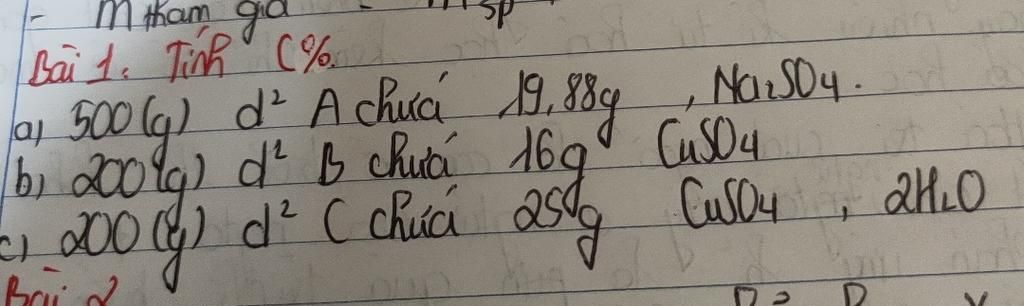 - m tham gia m sp
Bài 1: Tính C%.
a) 500(g) d² A chứa 19,88g , Na2SO4.
b) 200(g) d² B chứa 16g CuSO4
c) 200(g) d² C chứa 25g CuSO4 , 2H2O
Bài 2